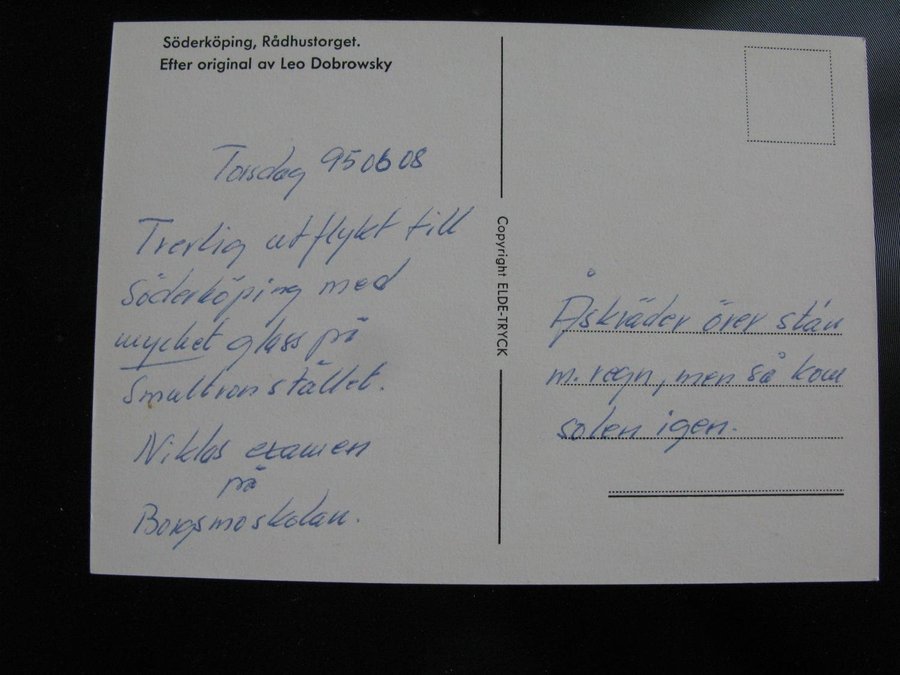 Söderköping, Rådhustorget.
Efter original av Leo Dobrowsky
Torsdag 950608
Trevlig utflykt till
Söderköping med
mycket glass på
Smultronstället.
Niklas examen
på
Borgsmoskolan.
Copyright ELDE-TRYCK
Åskväder över stan
m. regn, men så kom
solen igen.